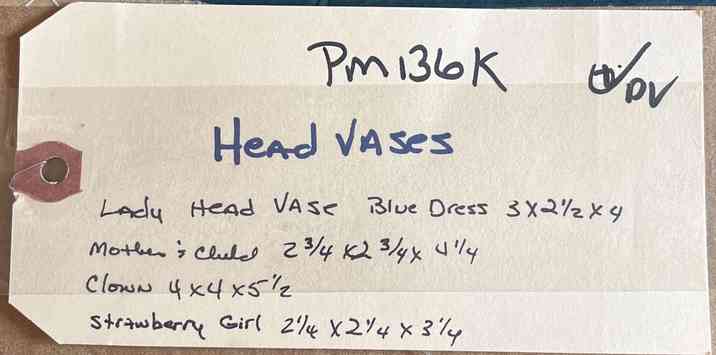 PM136K
DV
Head VAses
Lady Head Vase Blue Dress 3x2 1/2 x 4
Mother & Child 2 3/4 x2 3/4 x 4 1/4
Clown 4 x 4 x 5 1/2
Strawberry Girl 2 1/4 x 2 1/4 x 3 1/4